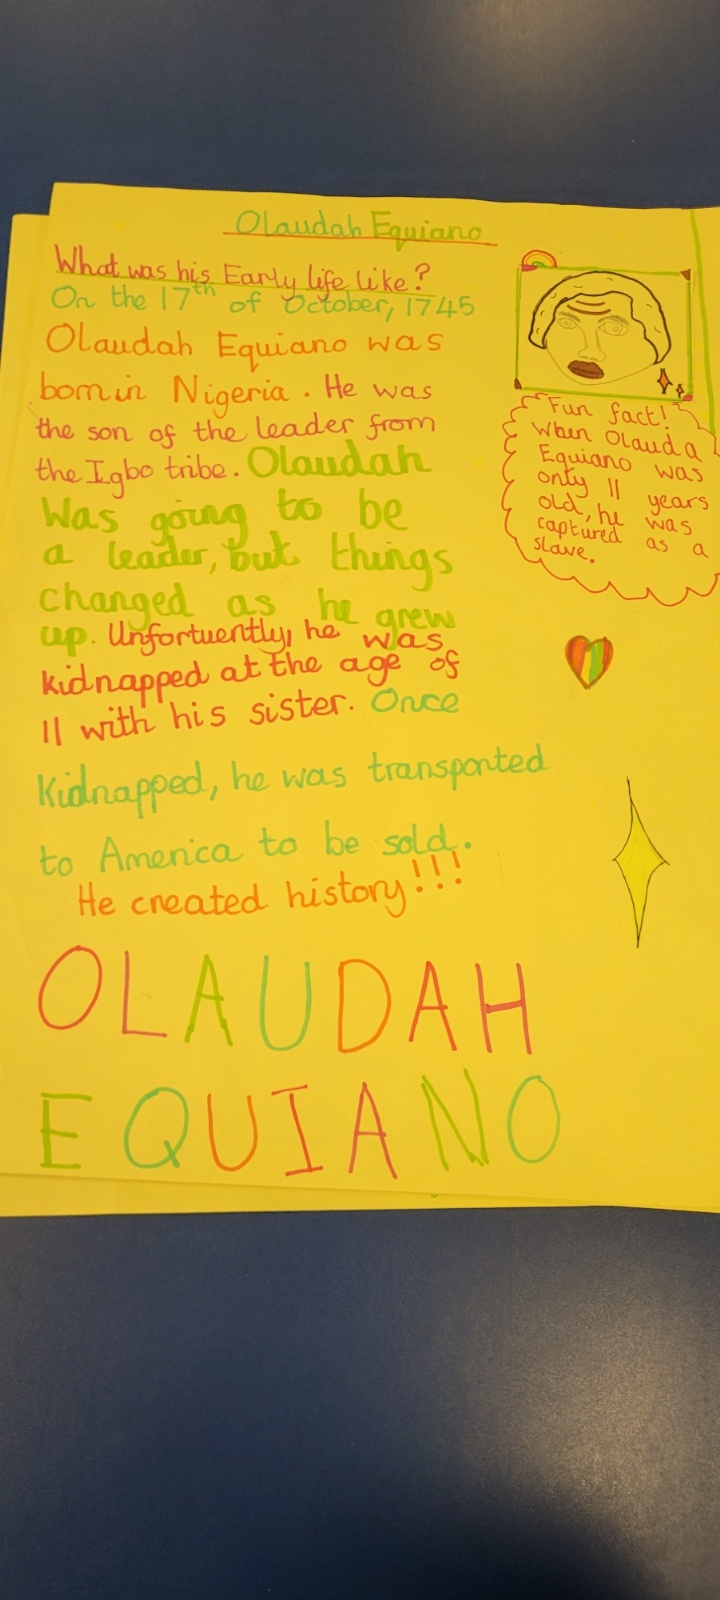 Olaudah Equiano
What was his Early life like?
On the 17th of October, 1745
Olaudah Equiano was
born in Nigeria. He was
the son of the leader from
the Igbo tribe. Olaudah
was going to be
a leader, but things
changed as he grew
up. Unfortuently, he was
kidnapped at the age of
11 with his sister. Once
kidnapped, he was transported
to America to be sold.
He created history!!!
OLAUDAH
EQUIANO
Fun fact!
When Olauda
Equiano was
only 11 years
old, he was
captured as a
slave.